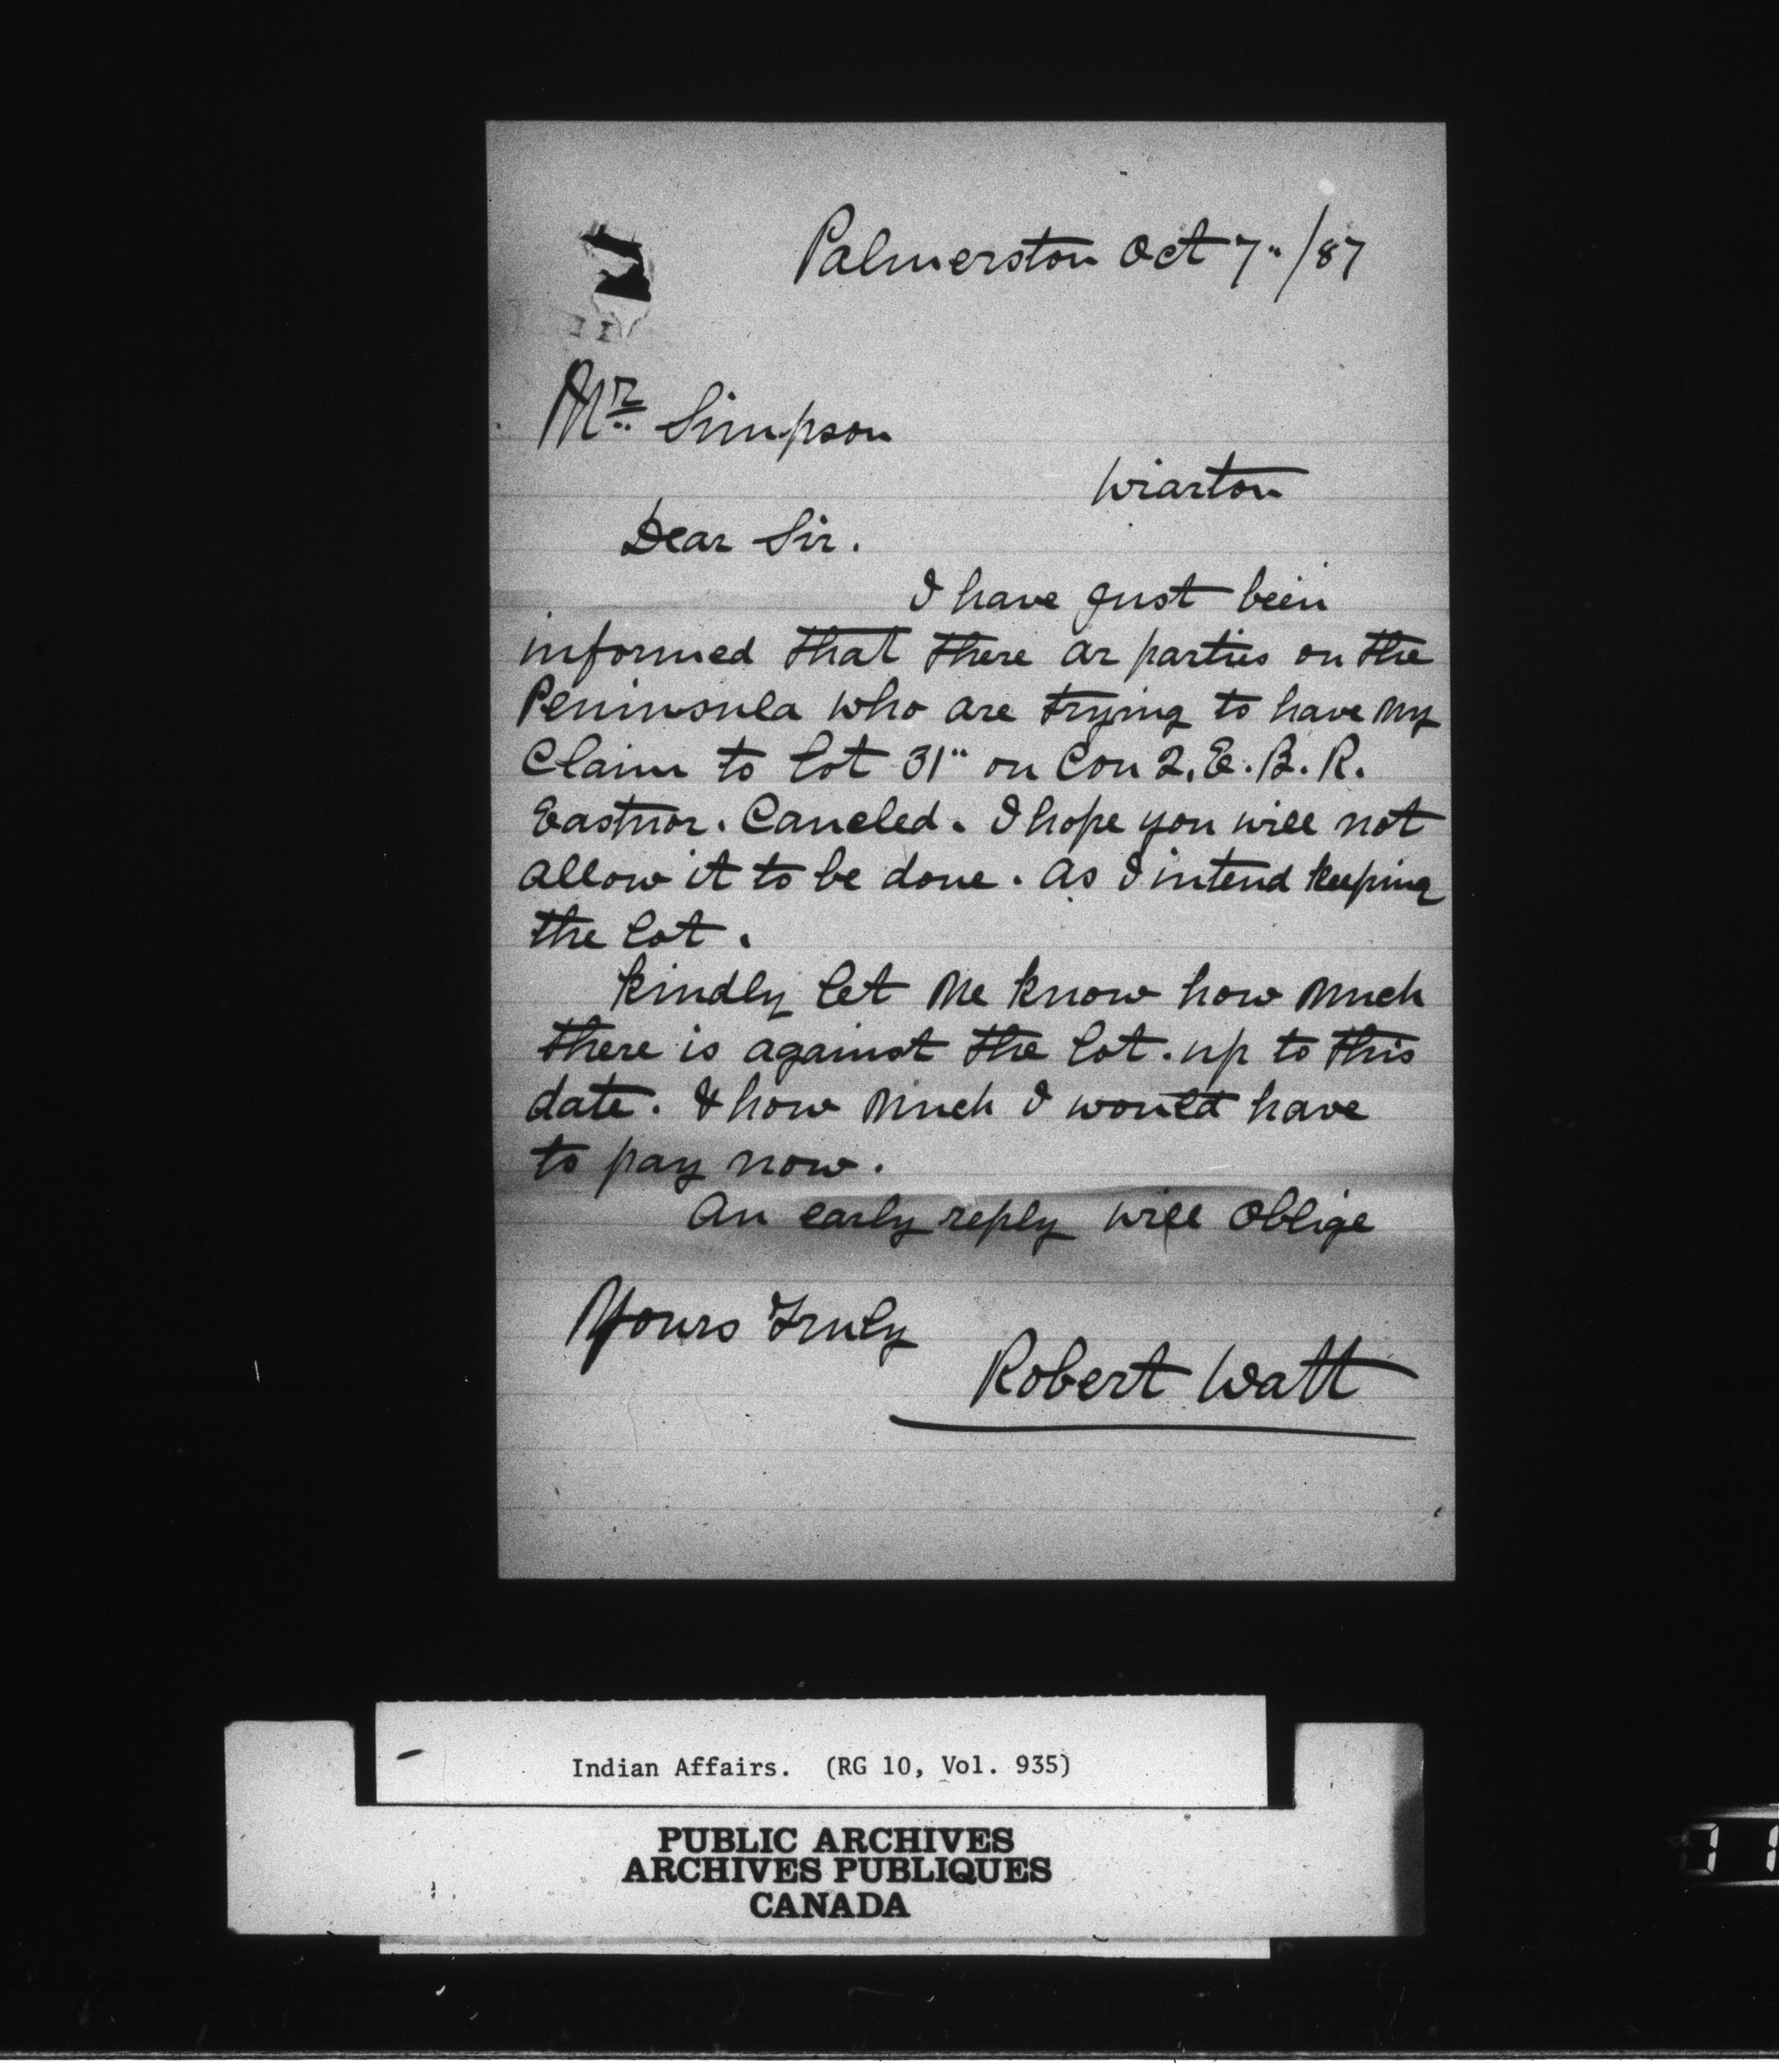 Palmerston Oct 7"/87
Mr Simpson
Wiarton
Dear Sir.
I have just been
informed that there ar parties on the
Peninsula who are trying to have my
Claim to lot 31" on Con 2. E. B. R.
Eastnor. Canceled. I hope you will not
allow it to be done. as I intend keeping
the lot.
kindly let me know how much
there is against the lot. up to this
date. & how much I would have
to pay now.
An early reply will oblige
Yours Truly
Robert Watt
Indian Affairs. (RG 10, Vol. 935)
PUBLIC ARCHIVES
ARCHIVES PUBLIQUES
CANADA